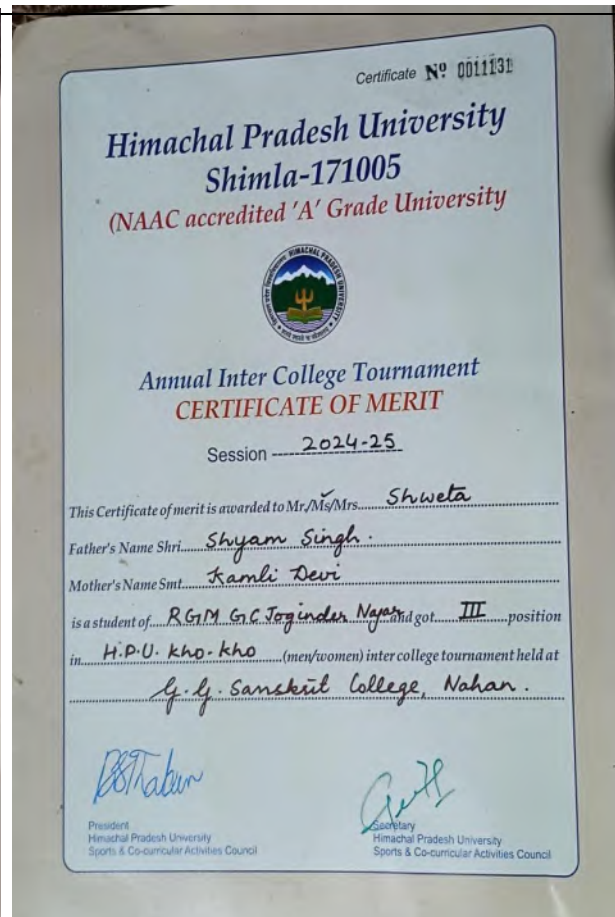 Certificate Nº 0011131
Himachal Pradesh University
Shimla-171005
(NAAC accredited 'A' Grade University
HIMACHAL PRADESH UNIVERSITY
Annual Inter College Tournament
CERTIFICATE OF MERIT
Session 2024-25
This Certificate of merit is awarded to Mr./Ms/Mrs. Shweta
Father's Name Shri Shyam Singh.
Mother's Name Smt Kamli Devi
is a student of RGM GC Joginder Nagar and got III position
in H.P.U. Kho-Kho (men/women) inter college tournament held at
G.G. Sanskrit College, Nahan.
President
Himachal Pradesh University
Sports & Co-curricular Activities Council
Secretary
Himachal Pradesh University
Sports & Co-curricular Activities Council